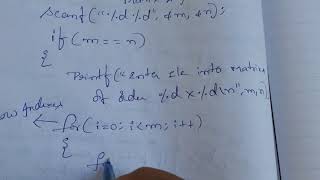 scanf("%d%d", &m, &n);
if(m==n)
{
printf("Enter ele into matrix
of order %d x %d\n", m,n);
row Indexes ← for(i=0; i<m; i++)
{
f